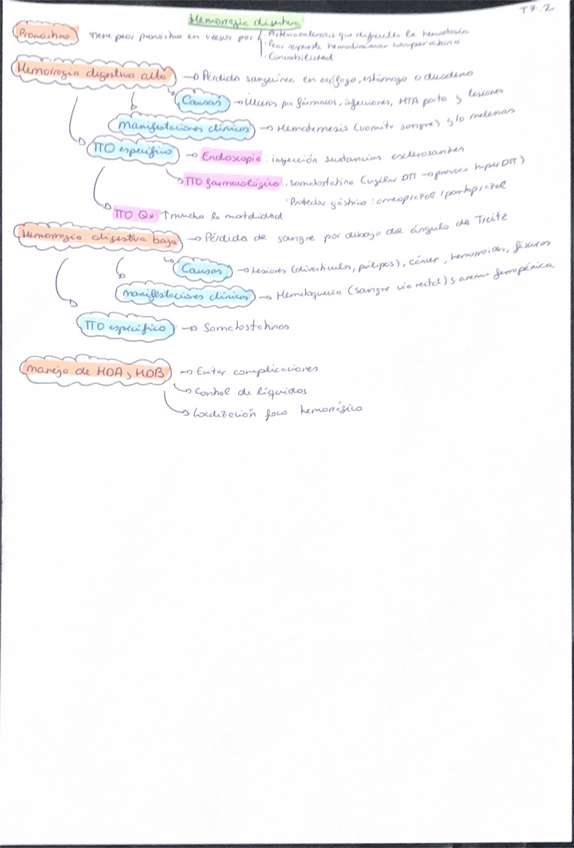 Hemorragia digestiva
T7.2
Pronóstico tiene peor pronóstico en viejos por
· Arterioesclerosis que dificulta la hemostasia
· Peor respuesta hemodinámica compensatoria
· Comorbilidad
Hemorragia digestiva alta → Pérdida sanguínea en esófago, estómago o duodeno
Causas → úlceras por fármacos, infecciones, HTA porta y lesiones
manifestaciones clínicas → Hematemesis (vomito sangre) y/o melenas
TTO específico → Endoscopia: inyección sustancias esclerosantes
TTO farmacológico: somatostatina (vigilar DTT → provoca hiper DTT)
· Protector gástrico: omeoprazol / pantoprazol
TTO Qx ↑ mucho la mortalidad
Hemorragia digestiva baja → Pérdida de sangre por debajo del ángulo de Treitz
Causas → Lesiones (divertículos, pólipos), cáncer, hemorroides, fisuras
manifestaciones clínicas → Hematoquecia (sangre vía rectal) y anemia ferropénica
TTO específico → Somatostatina
manejo de HDA y HDB → Evitar complicaciones
→ Control de líquidos
→ Localización foco hemorrágico